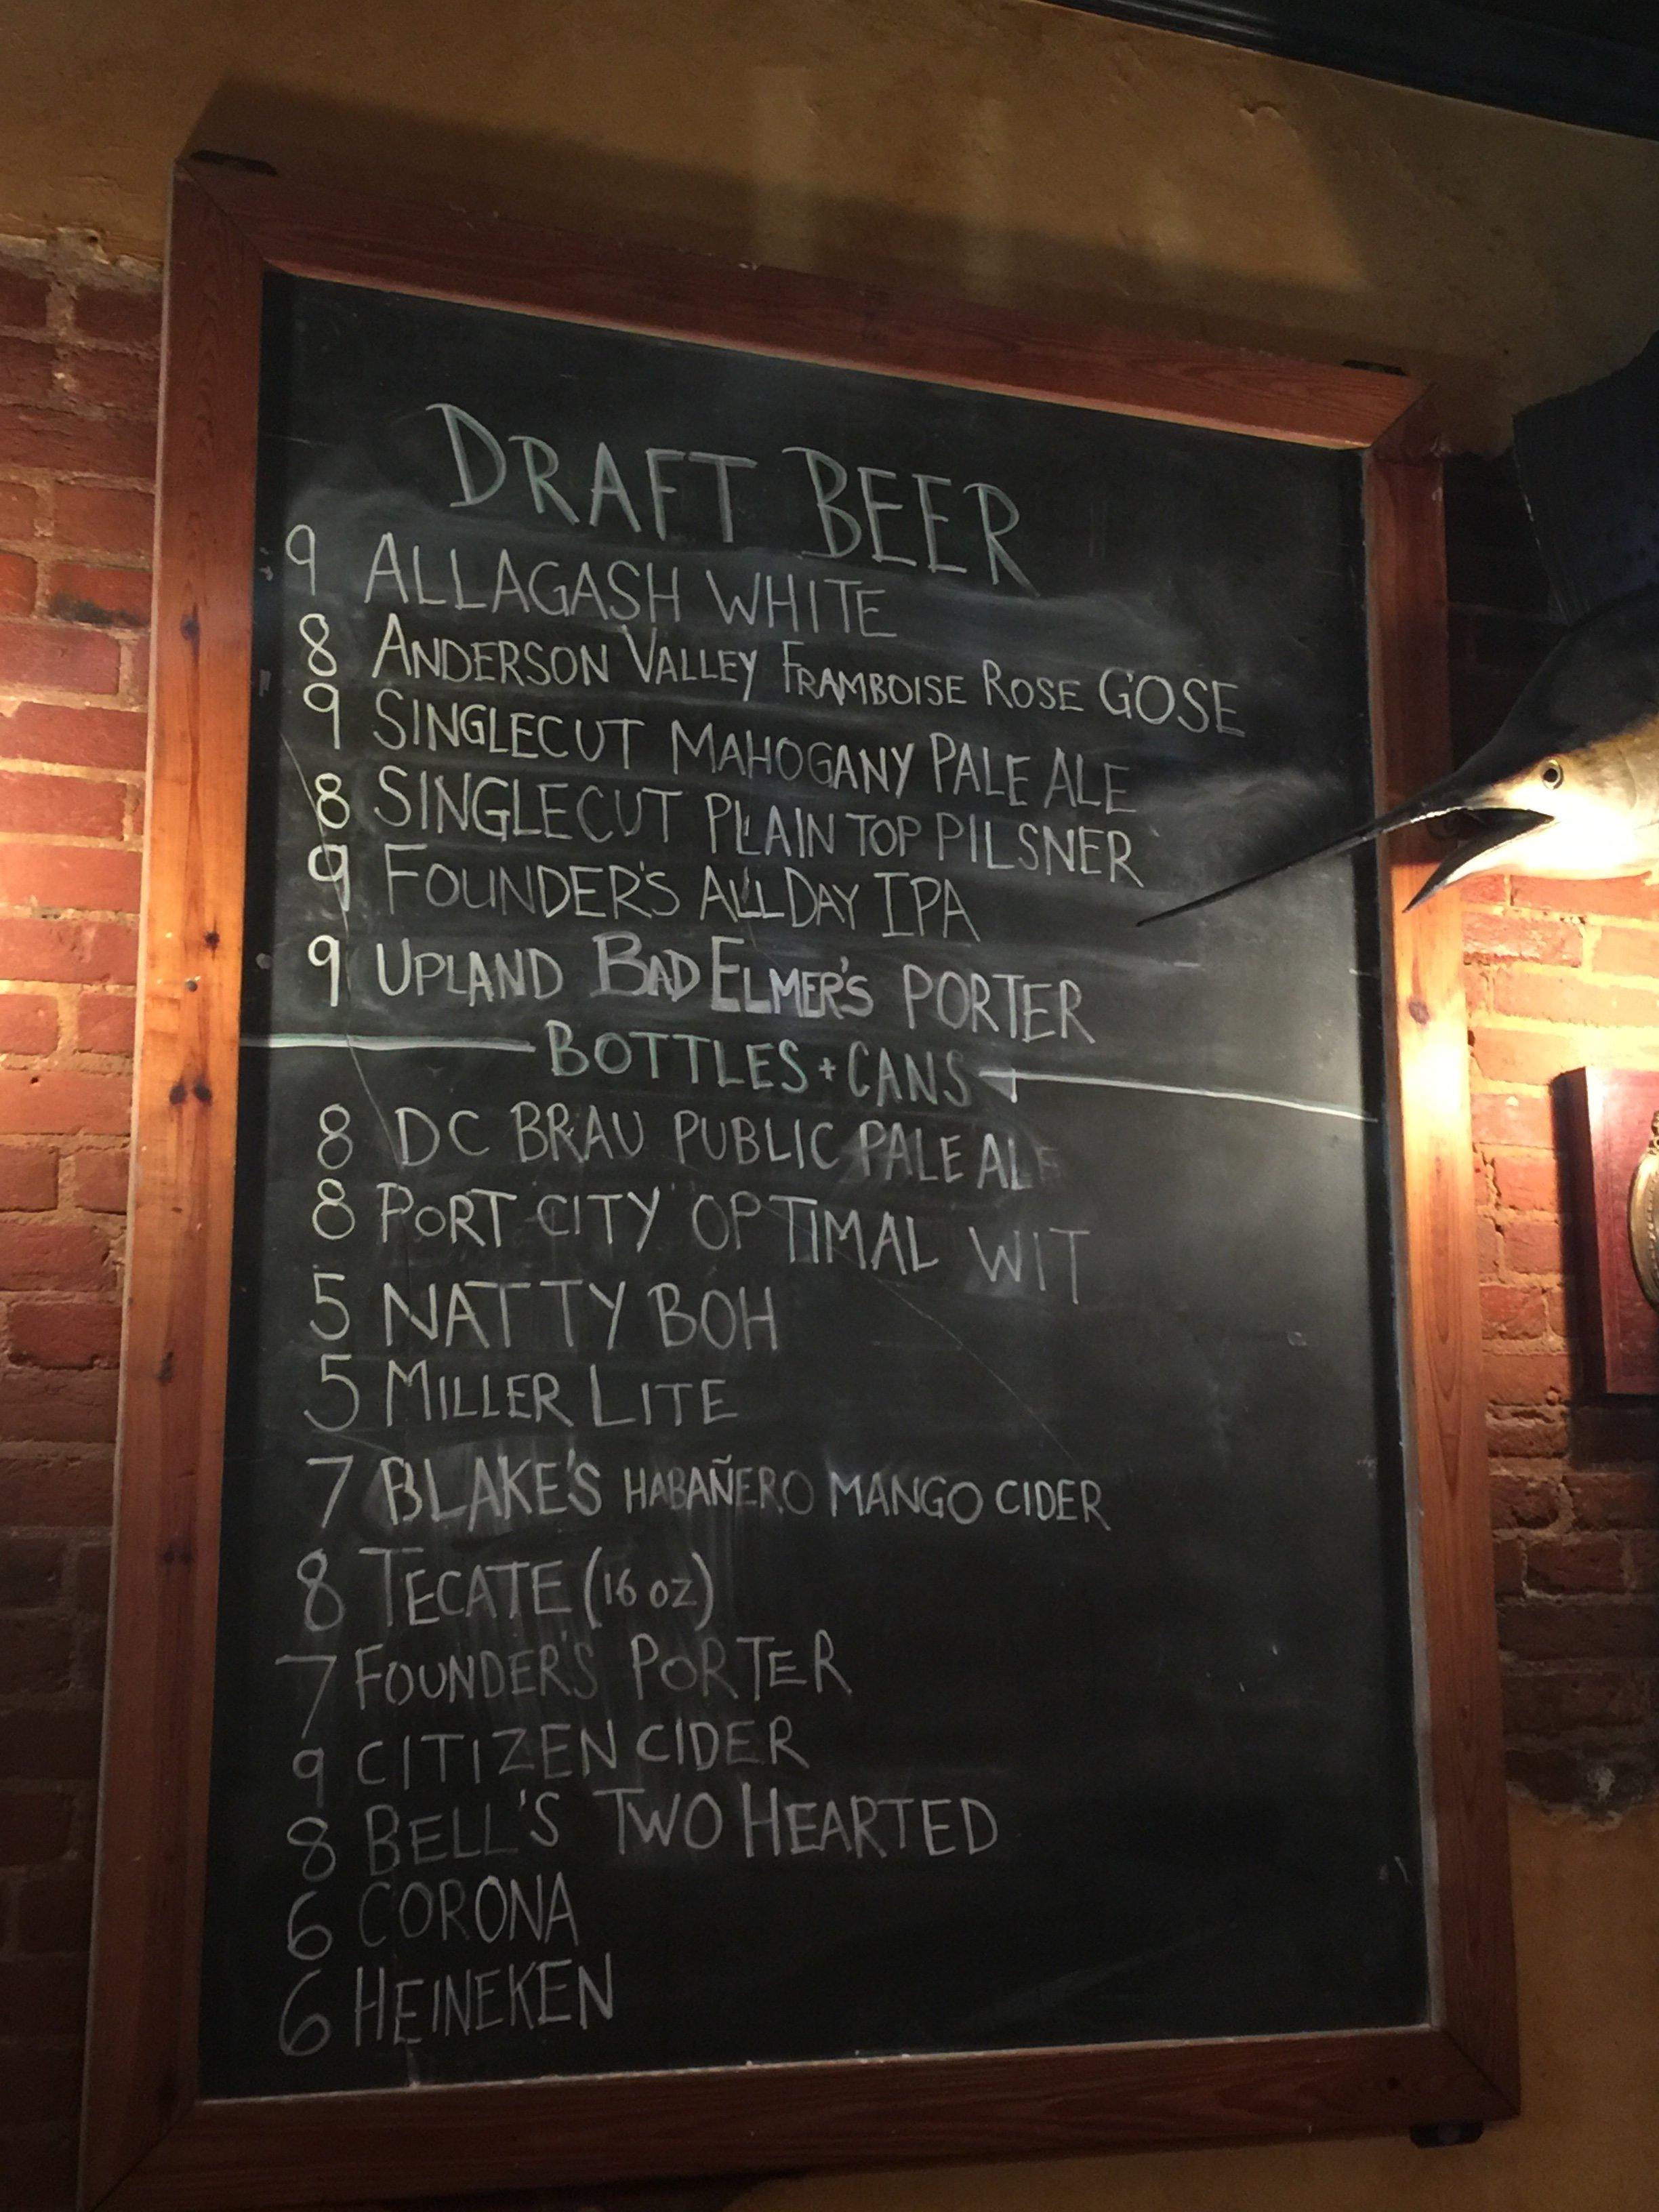 DRAFT BEER
9 ALLAGASH WHITE
8 ANDERSON VALLEY FRAMBOISE ROSE GOSE
9 SINGLECUT MAHOGANY PALE ALE
8 SINGLECUT PLAIN TOP PILSNER
9 FOUNDER'S ALL DAY IPA
9 UPLAND BAD ELMER'S PORTER
BOTTLES + CANS
8 DC BRAU PUBLIC PALE ALE
8 PORT CITY OPTIMAL WIT
5 NATTY BOH
5 MILLER LITE
7 BLAKE'S HABAÑERO MANGO CIDER
8 TECATE (16 OZ)
7 FOUNDER'S PORTER
9 CITIZEN CIDER
8 BELL'S TWO HEARTED
6 CORONA
6 HEINEKEN